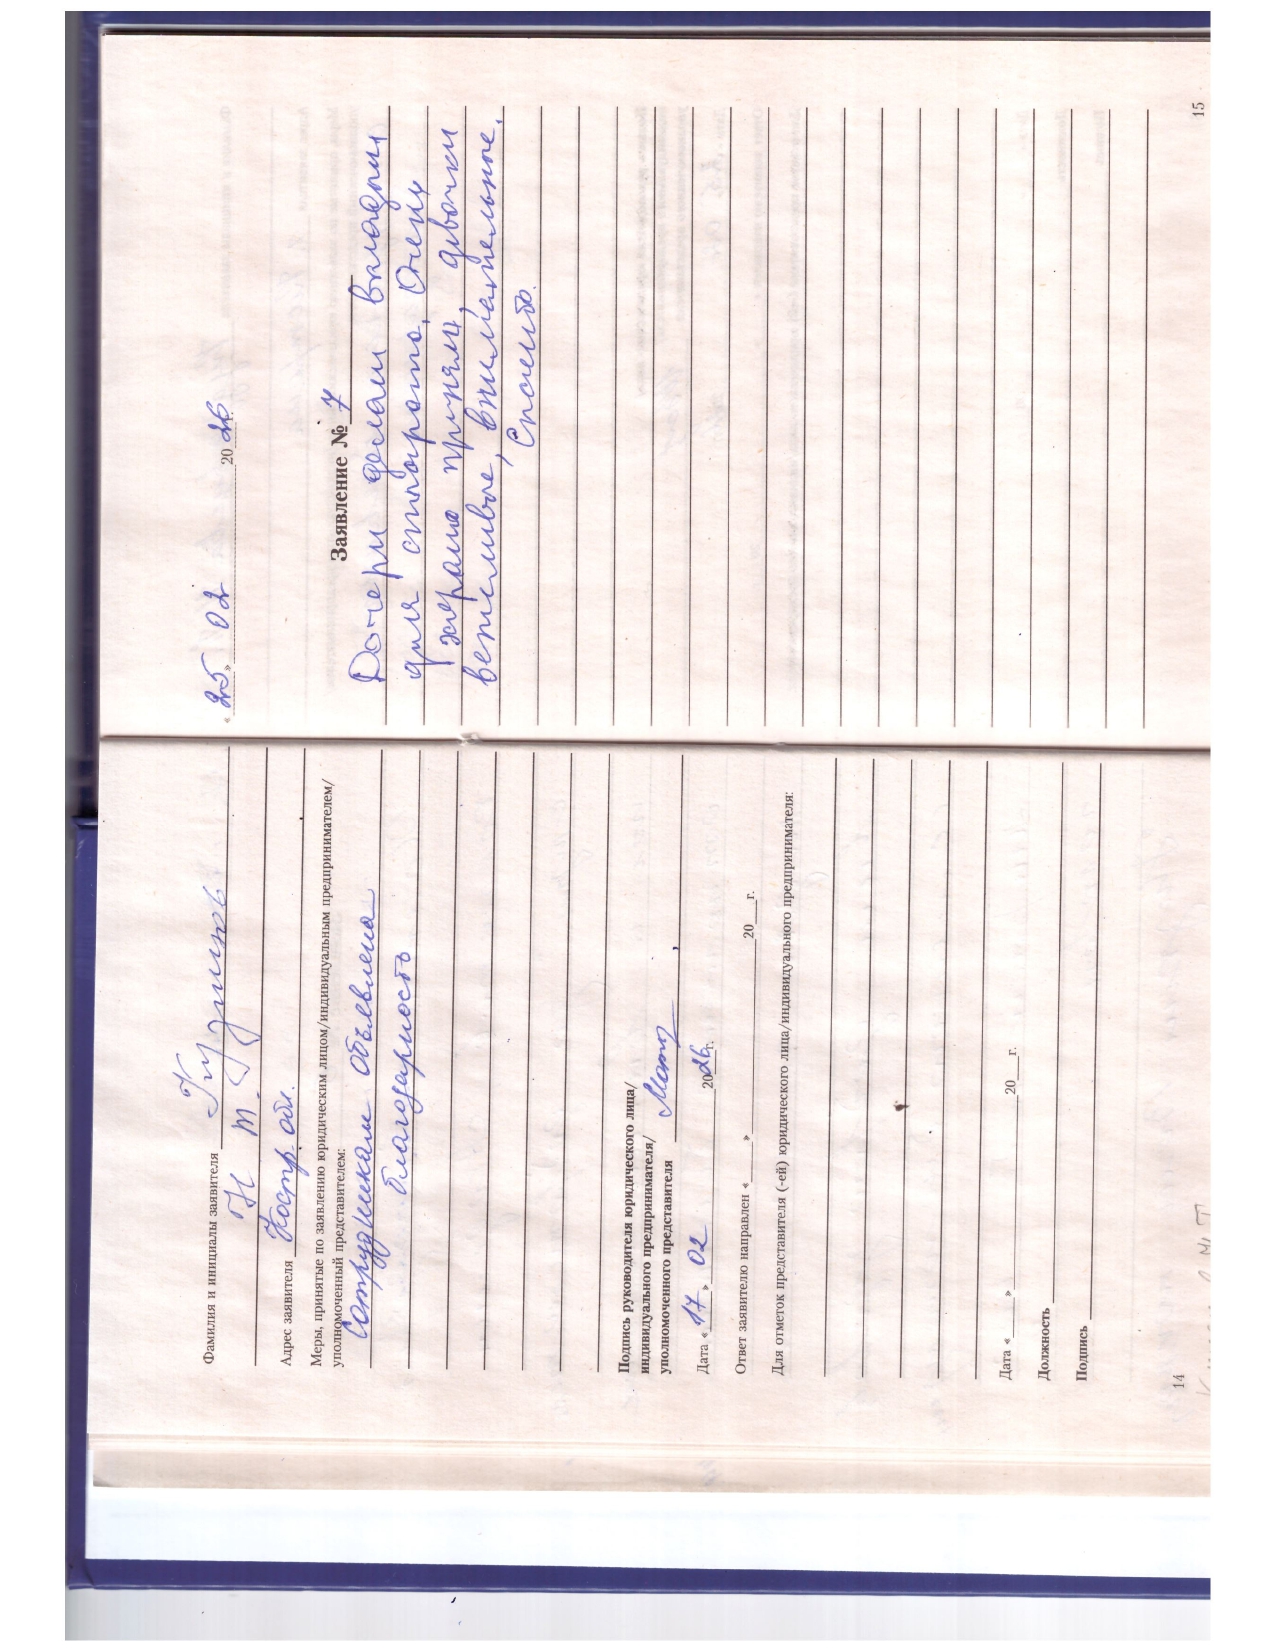 Фамилия и инициалы заявителя
Н Т.
Адрес заявителя Костр. обл.
Меры, принятые по заявлению юридическим лицом/индивидуальным предпринимателем/
уполномоченный представителем:
Сотрудникам объявлена
благодарность
Подпись руководителя юридического лица/
индивидуального предпринимателя/
уполномоченного представителя
Дата « 17 » 02 2026 г.
Ответ заявителю направлен « » 20 г.
Для отметок представителя (-ей) юридического лица/индивидуального предпринимателя:
Дата « » 20 г.
Должность
Подпись
14
« 25 » 02 2026 г.
Заявление № 7
Дочери делали вкладыш
для аппарата. Очень
хорошо приняли, девочки
вежливые, внимательные.
Спасибо.
15